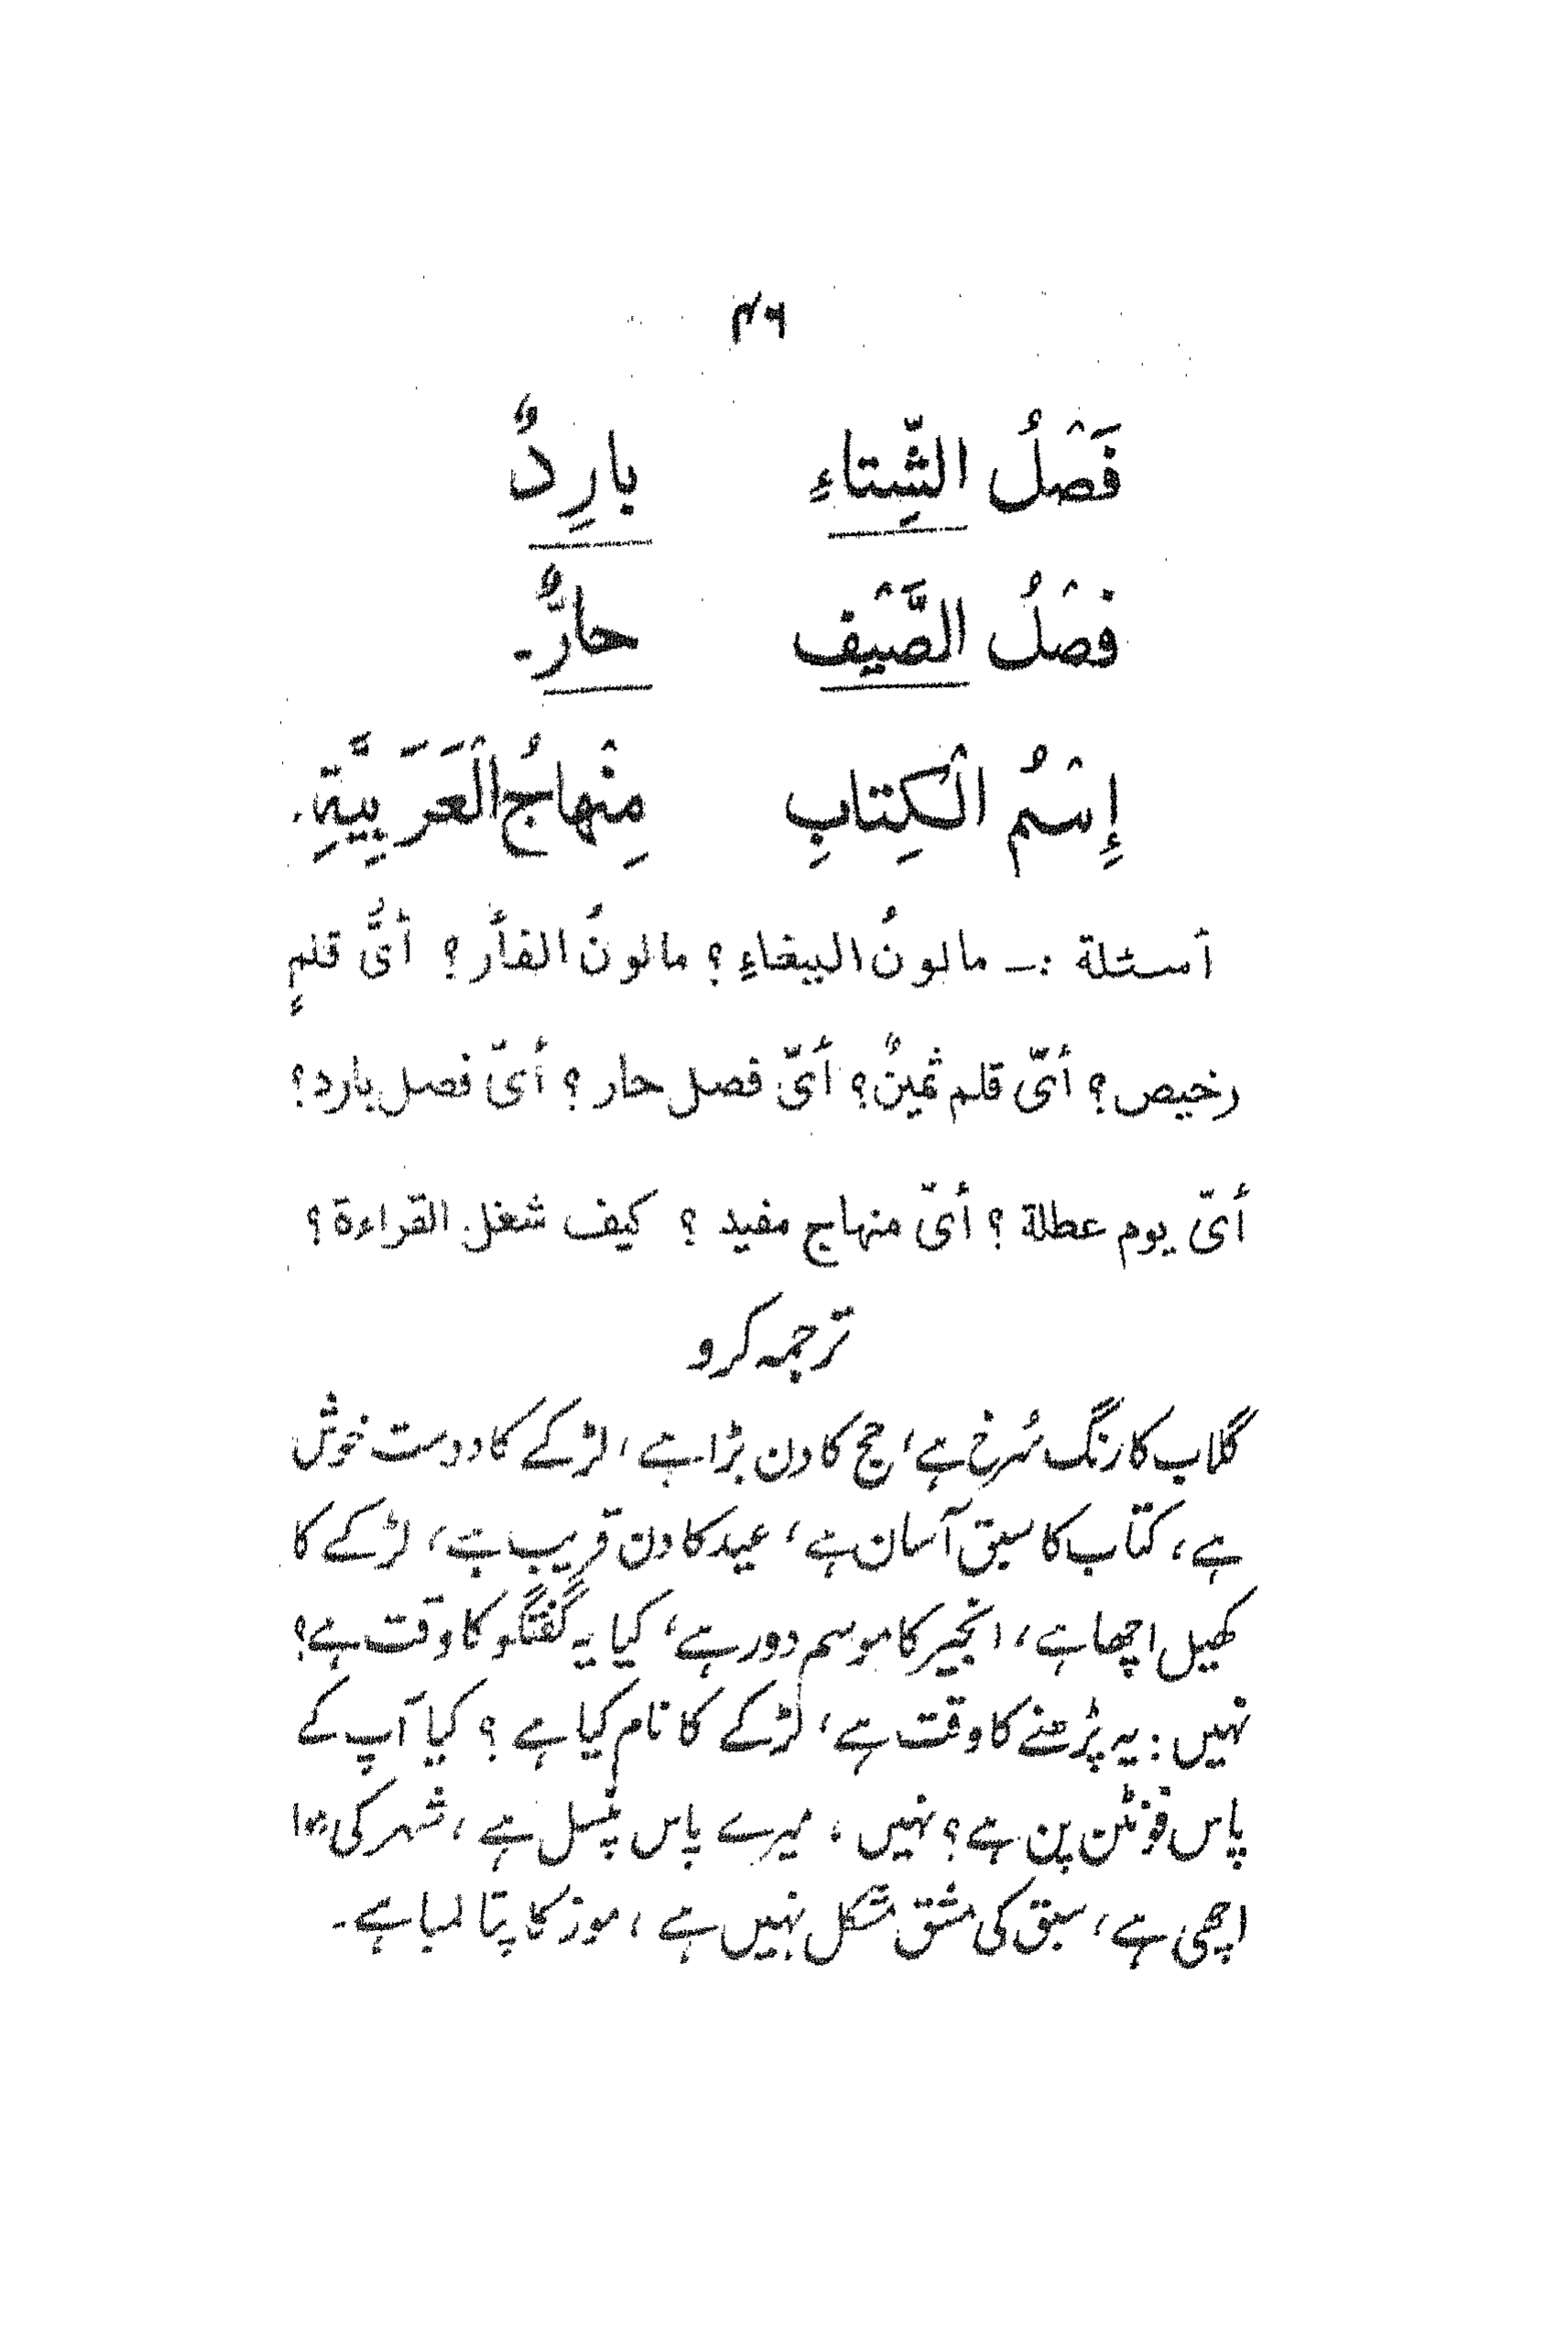 ۴۶
فَصْلُ الشِّتاءِ بارِدٌ
فصْلُ الصَّيْف حارٌّ۔
إِسْمُ الْكِتابِ مِنْهاجُ الْعَرَبِيَّةِ.
أسئلة :ــ مالونُ الببغاءِ؟ مالونُ الفأر؟ أىُّ قلمٍ
رخيص؟ أىّ قلم ثمينٌ؟ أىّ فصل حار؟ أىّ فصل بارد؟
أىّ يوم عطلة؟ أىّ منهاج مفيد؟ كيف شغل القراءة؟
ترجمہ کرو
گلاب کا رنگ سُرخ ہے، حج کا دن بڑا ہے، لڑکے کا دوست خوش
ہے، کتاب کا سبق آسان ہے، عید کا دن قریب ہے، لڑکے کا
کھیل اچھا ہے، انجیر کا موسم دور ہے، کیا یہ گفتگو کا وقت ہے؟
نہیں: یہ پڑھنے کا وقت ہے، لڑکے کا نام کیا ہے؟ کیا آپ کے
پاس فونٹن پن ہے؟ نہیں، میرے پاس پنسل ہے، شہر کی ہوا
اچھی ہے، سبق کی مشق مشکل نہیں ہے، موز کا پتا لمبا ہے۔